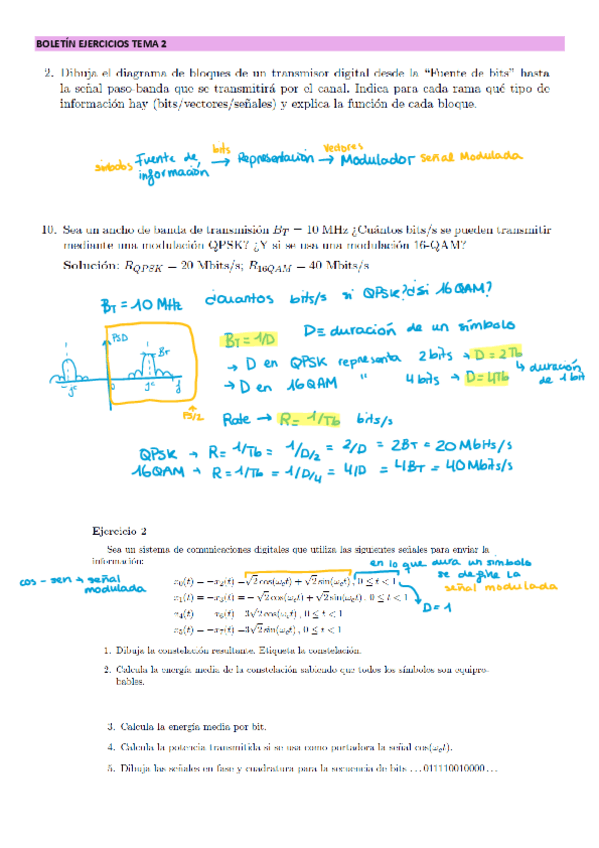 BOLETÍN EJERCICIOS TEMA 2
2. Dibuja el diagrama de bloques de un transmisor digital desde la “Fuente de bits” hasta
la señal paso-banda que se transmitirá por el canal. Indica para cada rama qué tipo de
información hay (bits/vectores/señales) y explica la función de cada bloque.
símbolos Fuente de información → bits Representación → vectores Modulador señal Modulada
10. Sea un ancho de banda de transmisión B_T = 10 MHz ¿Cuántos bits/s se pueden transmitir
mediante una modulación QPSK? ¿Y si se usa una modulación 16-QAM?
Solución: R_QPSK = 20 Mbits/s; R_16QAM = 40 Mbits/s
B_T = 10 MHz ¿cuantos bits/s si QPSK? ¿si 16QAM?
D ≡ duración de un símbolo
PSD
B_T
B_T = 1/D
→ D en QPSK representa 2 bits → D = 2Tb
→ D en 16QAM " 4 bits → D = 4Tb
↳ duración de 1 bit
-fc 0 fc f
PS/2
Rate → R = 1/Tb bits/s
QPSK → R = 1/Tb = 1/D/2 = 2/D = 2B_T = 20 Mbits/s
16QAM → R = 1/Tb = 1/D/4 = 4/D = 4B_T = 40 Mbits/s
Ejercicio 2
Sea un sistema de comunicaciones digitales que utiliza las siguientes señales para enviar la
información:
en lo que dura un símbolo
se define la
señal modulada
cos - sen → señal
modulada
x_0(t) = −x_2(t) = √2 cos(ω_c t) + √2 sin(ω_c t), 0 ≤ t < 1
x_1(t) = −x_3(t) = −√2 cos(ω_c t) + √2 sin(ω_c t), 0 ≤ t < 1
D = 1
x_4(t) = −x_6(t) = 3√2 cos(ω_c t), 0 ≤ t < 1
x_5(t) = −x_7(t) = 3√2 sin(ω_c t), 0 ≤ t < 1
1. Dibuja la constelación resultante. Etiqueta la constelación.
2. Calcula la energía media de la constelación sabiendo que todos los símbolos son equipro-
bables.
3. Calcula la energía media por bit.
4. Calcula la potencia transmitida si se usa como portadora la señal cos(ω_c t).
5. Dibuja las señales en fase y cuadratura para la secuencia de bits ...011110010000...